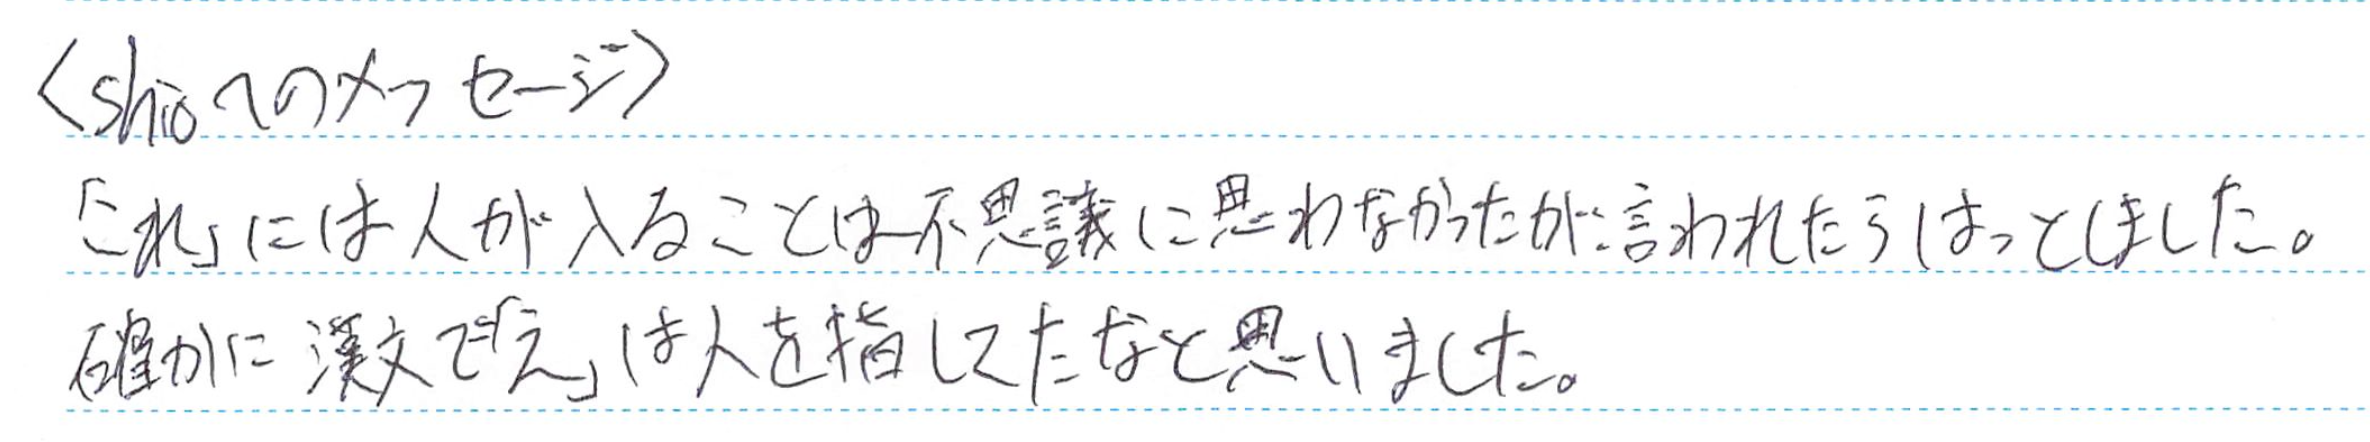 <shioへのメッセージ>
「これ」には人が入ることは不思議に思わなかったが言われたらはっとしました。
確かに漢文で「之」は人を指してたなと思いました。